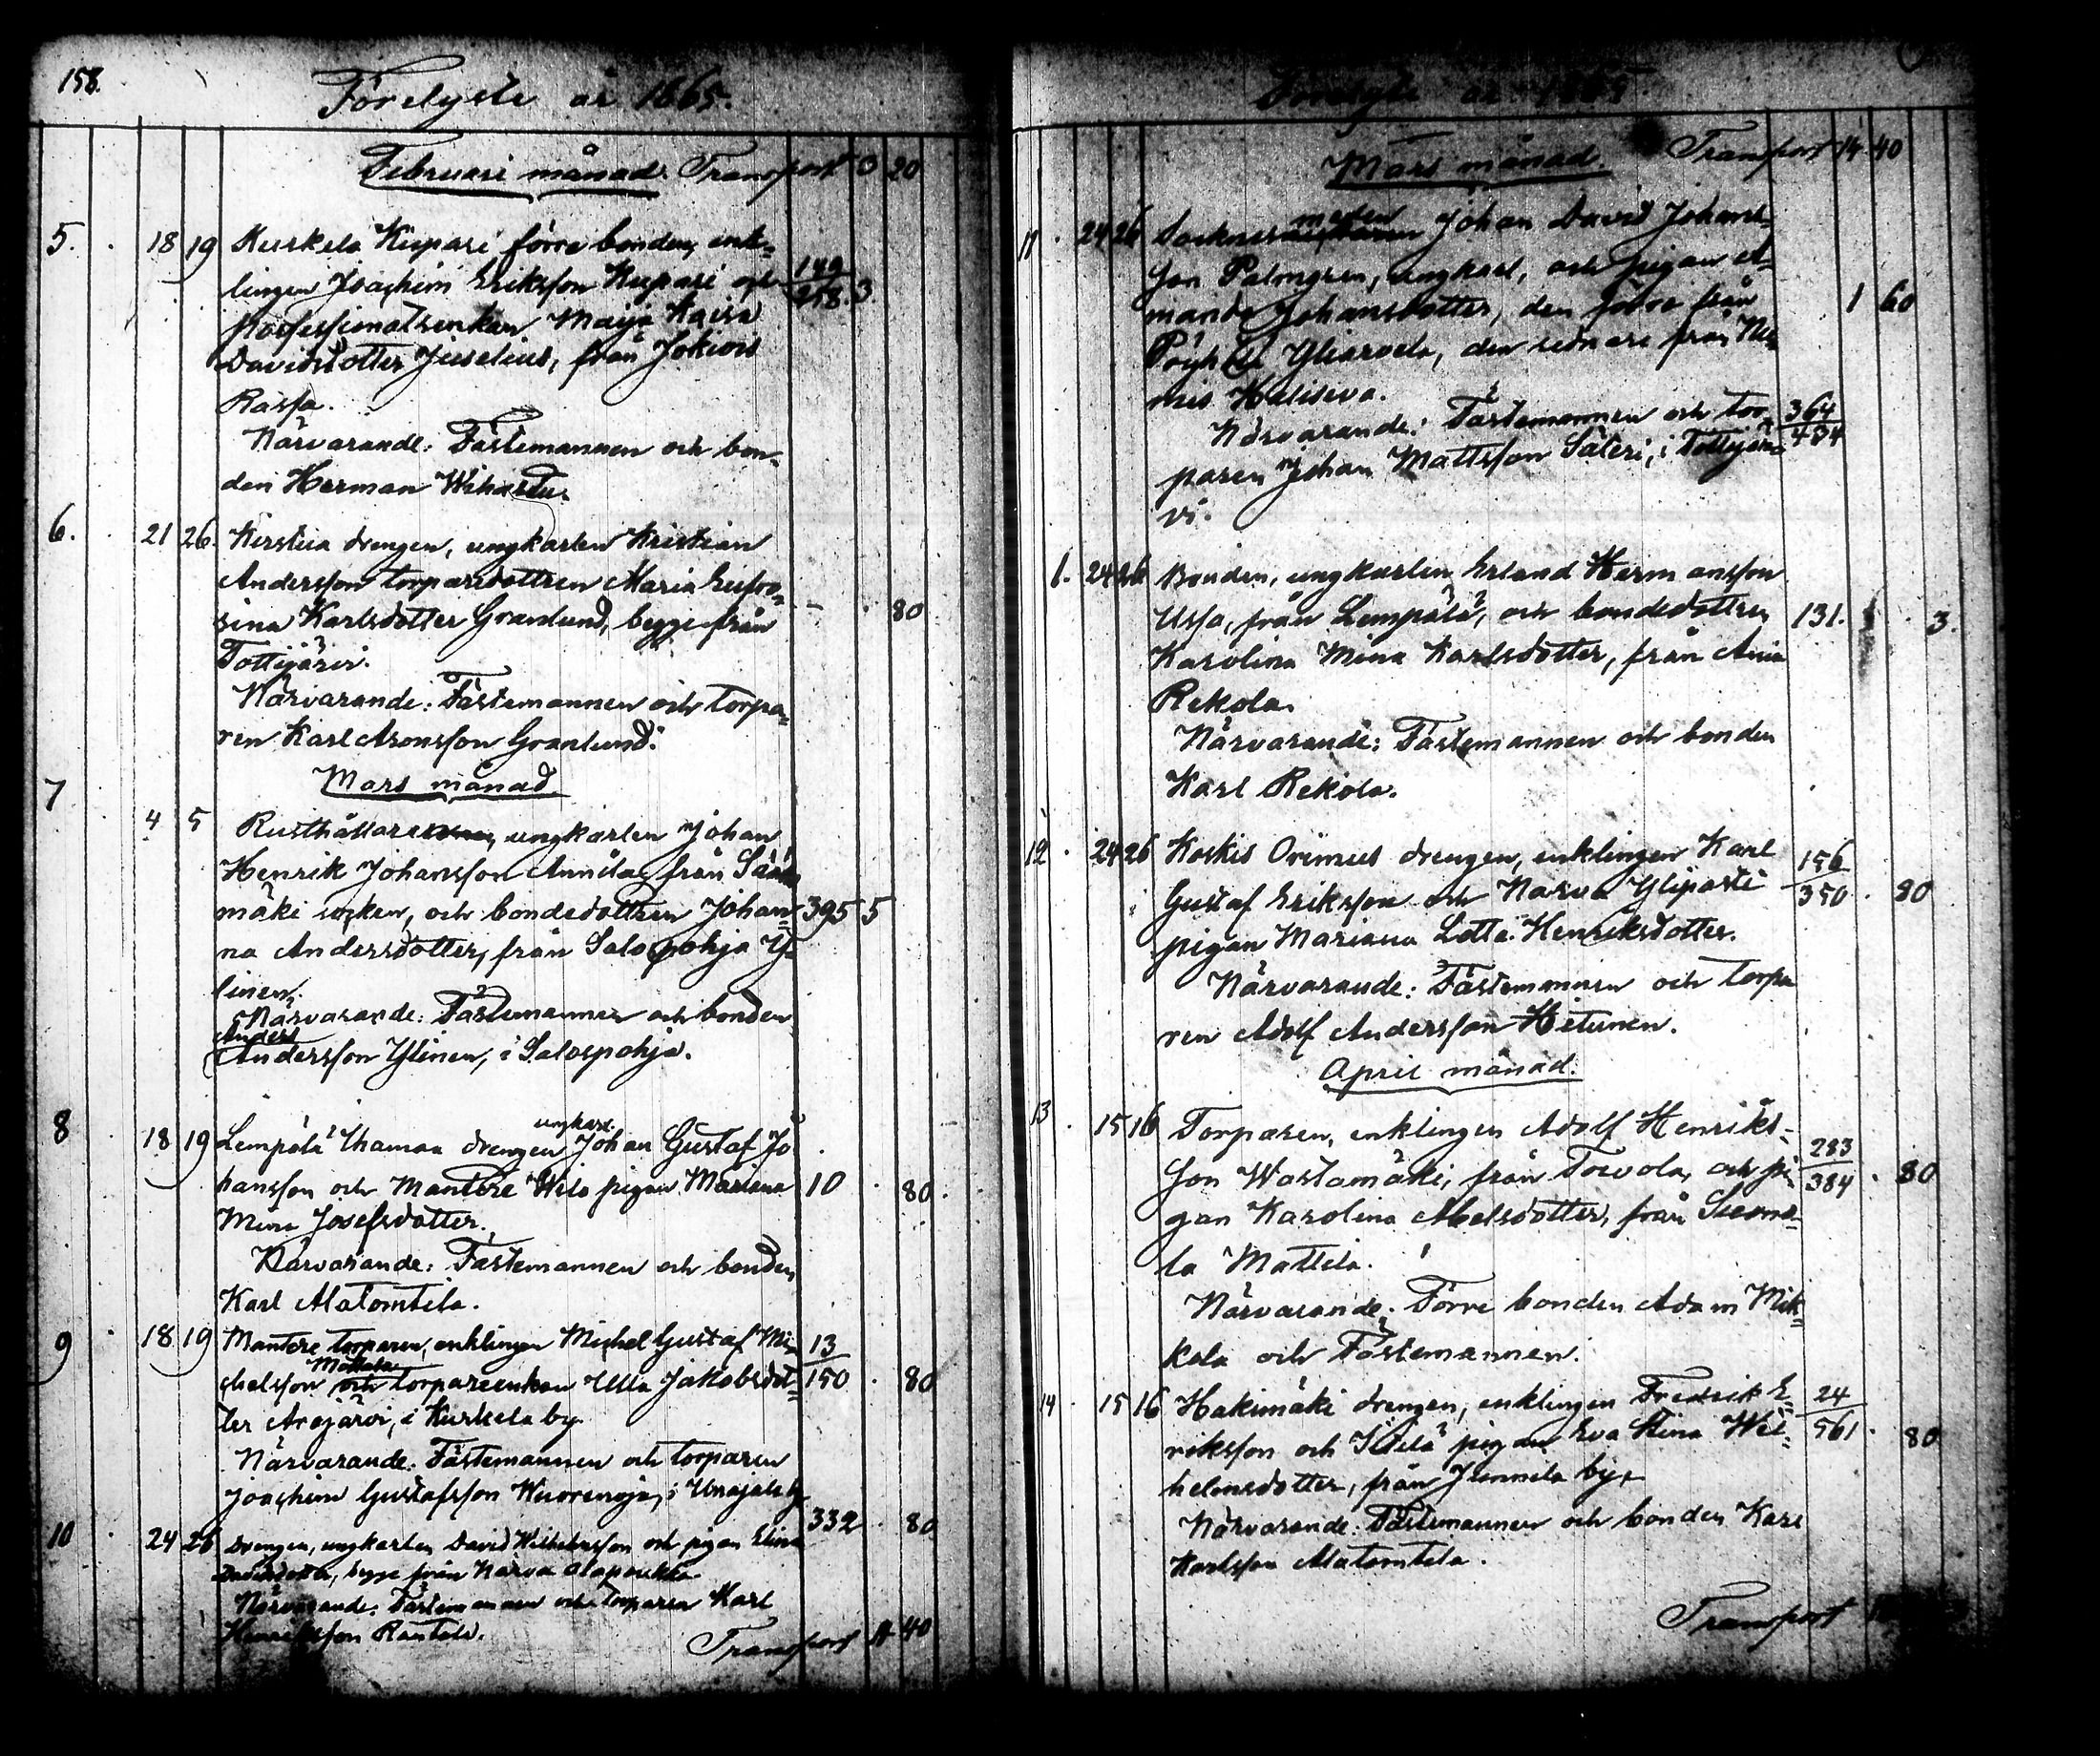 158.
Förelyste år 1865.
Februari månad. Transport 3 20
5. 18 19 Kurkela Kupari förre bonden, enk-
lingen Joachim Eriksson Kupari och 149
professionalsenkan Maija Kaisa 258. 3.
Davidsdotter Juselius, från Jokiois
Rassa.
Närvarande: Fästemannen och bon-
den Herman
6. 21 26. Kirstua drengen, ungkarlen Kristian
Andersson torparedottren Maria Eufro-
sina Karlsdotter Granlund, begge från - 80
Tottijärvi.
Närvarande: Fästemannen och torpa-
ren Karl Aronsson Granlund.
Mars månad.
7 4 5 Rusthållare ungkarlen Johan
Henrik Johansson Annila, från Sääks
mäki socken, och bondedottren Johan- 395 5
na Andersdotter, från Salospohja Y-
linen.
Närvarande: Fästemannen och bonden
Anders
Andersson Ylinen, i Salospohja.
ungkarl.
8 18 19 Lempälä drengen Johan Gustaf Jo
hansson och Mantere Wilo pigan Mariana 10 80.
Mina Josefsdotter.
Närvarande: Fästemannen och bonden
Karl Alatomtila.
9 18 19 Mantere torparen, enklingen Michel Gustaf Mi- 13
chelsson och torpareenkan Ulla Jakobsdot- 150 80
ter Arajärvi, i Kurkela by.
Närvarande: Fästemannen och torparen
Joachim Gustafsson Wuorenoja, i Unajala by
332 80
10 24 26 Drengen, ungkarlen David Wilhelmsson och pigan Elina
Davidsdotter, begge från Narva Alapoukka
Närvarande: Fästemannen och torparen Karl
Henriksson Rantala.
Transport 14 40
Förelyste år 1865
Mars månad. Transport 14 40
men
11 24 26 Sockne Johan David Johans-
son Palmgren, ungkarl, och pigan A-
manda Johansdotter, den förre från 1 60
Yliarvela, den sednare från Nur-
mis
Närvarande: Fästemannen och tor- 364
paren Johan Mattsson Säteri, i Tottijär- 484
vi.
1. 24 26 Bonden, ungkarlen Erland Hermansson
Ussa, från Lempälä, och bondedottren 131. 3.
Karolina Mina Karlsdotter, från Ania
Rekola.
Närvarande: Fästemannen och bonden
Karl Rekola.
12 24 26 Koskis Orimus drengen, enklingen Karl 156
Gustaf Eriksson och Narva Yliparti 350 80
pigan Mariana Lotta Henriksdotter.
Närvarande: Fästemannen och torpa
ren Adolf Andersson Hetunen.
April månad.
13 15 16 Torparen, enklingen Adolf Henriks-
son Wastamäki, från Toivola, och pi- 283
384 80
gan Karolina Abelsdotter, från Suoma-
la Mattila.
Närvarande: Förre bonden Adam Mik-
kola och Fästemannen.
14 15 16 Hakimäki drengen, enklingen Fredrik E- 24
riksson och pigan Eva Stina Wil- 561 80
helmsdotter, från Junnila by.
Närvarande: Fästemannen och bonden Karl
Karlsson Alatomtila.
Transport